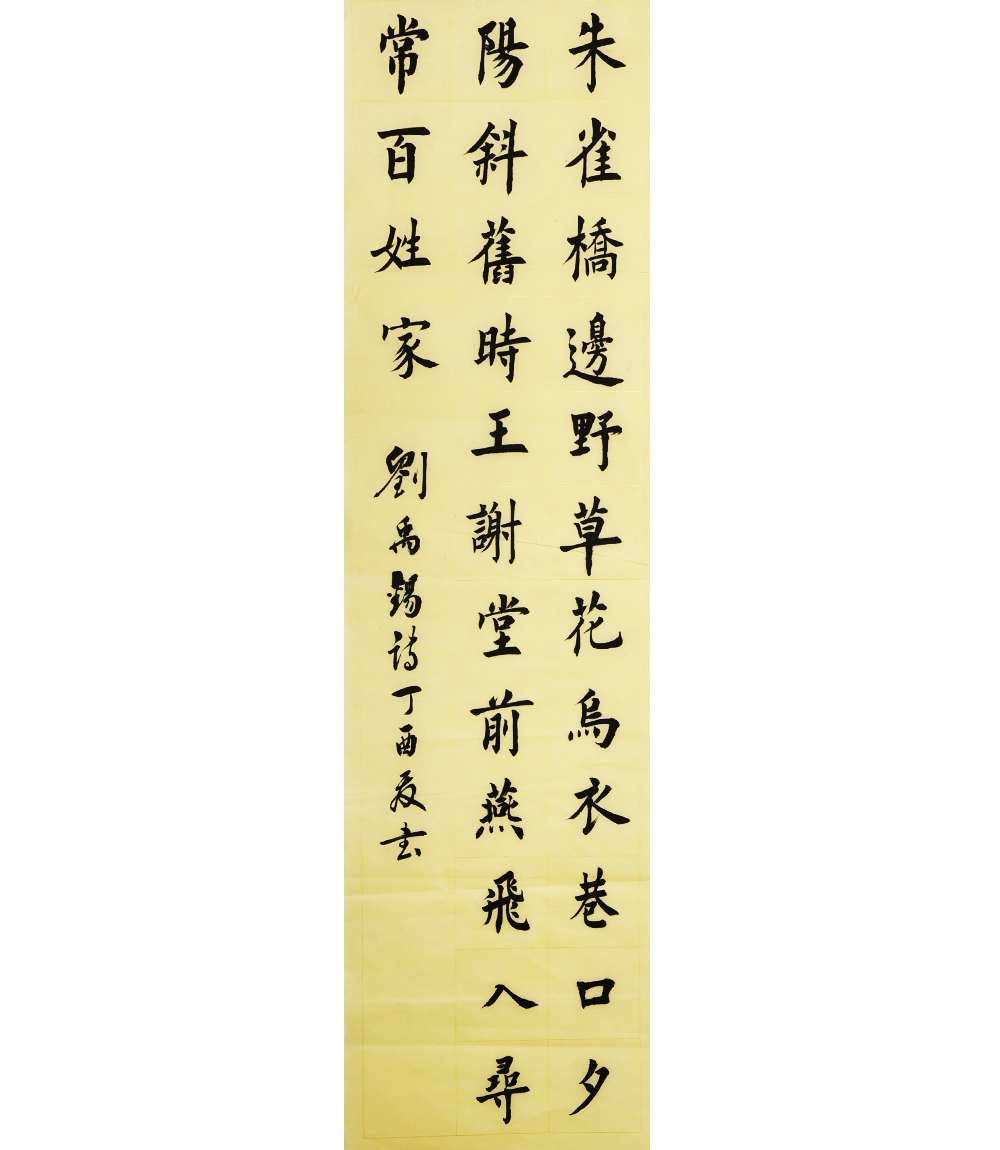 朱雀橋邊野草花烏衣巷口夕
陽斜舊時王謝堂前燕飛入尋
常百姓家 劉禹錫詩丁酉夏書